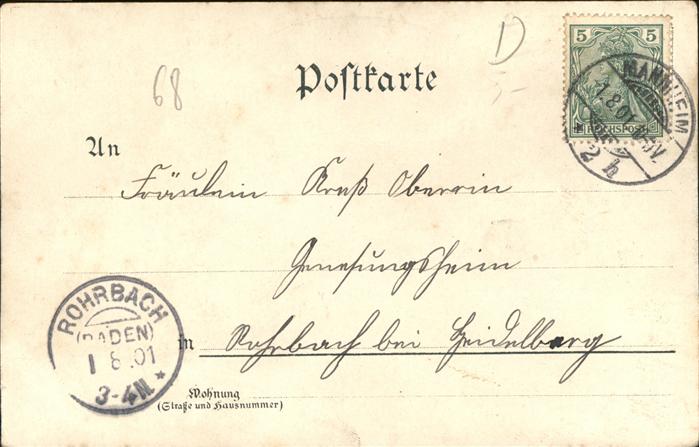 5 5
REICHSPOST
MANNHEIM
1.8.01
2 h
D
68
Postkarte
An
Fräulein Kreß Oberin
Genesungsheim
in Rohrbach bei Heidelberg
ROHRBACH
(BADEN)
1 8.01
3-4N.
Wohnung
(Straße und Hausnummer)